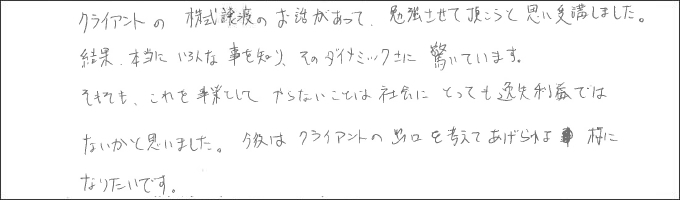 クライアントの 株式譲渡のお話があって、勉強させて頂こうと思い受講しました。
結果、本当に いろんな 事を知り、そのダイナミックさに 驚いています。
そもそも、これを事業として やらないことは 社会に とっても 逸失利益では
ないかと思いました。今後は クライアントの 出口を考えて あげられる 様に
なりたいです。